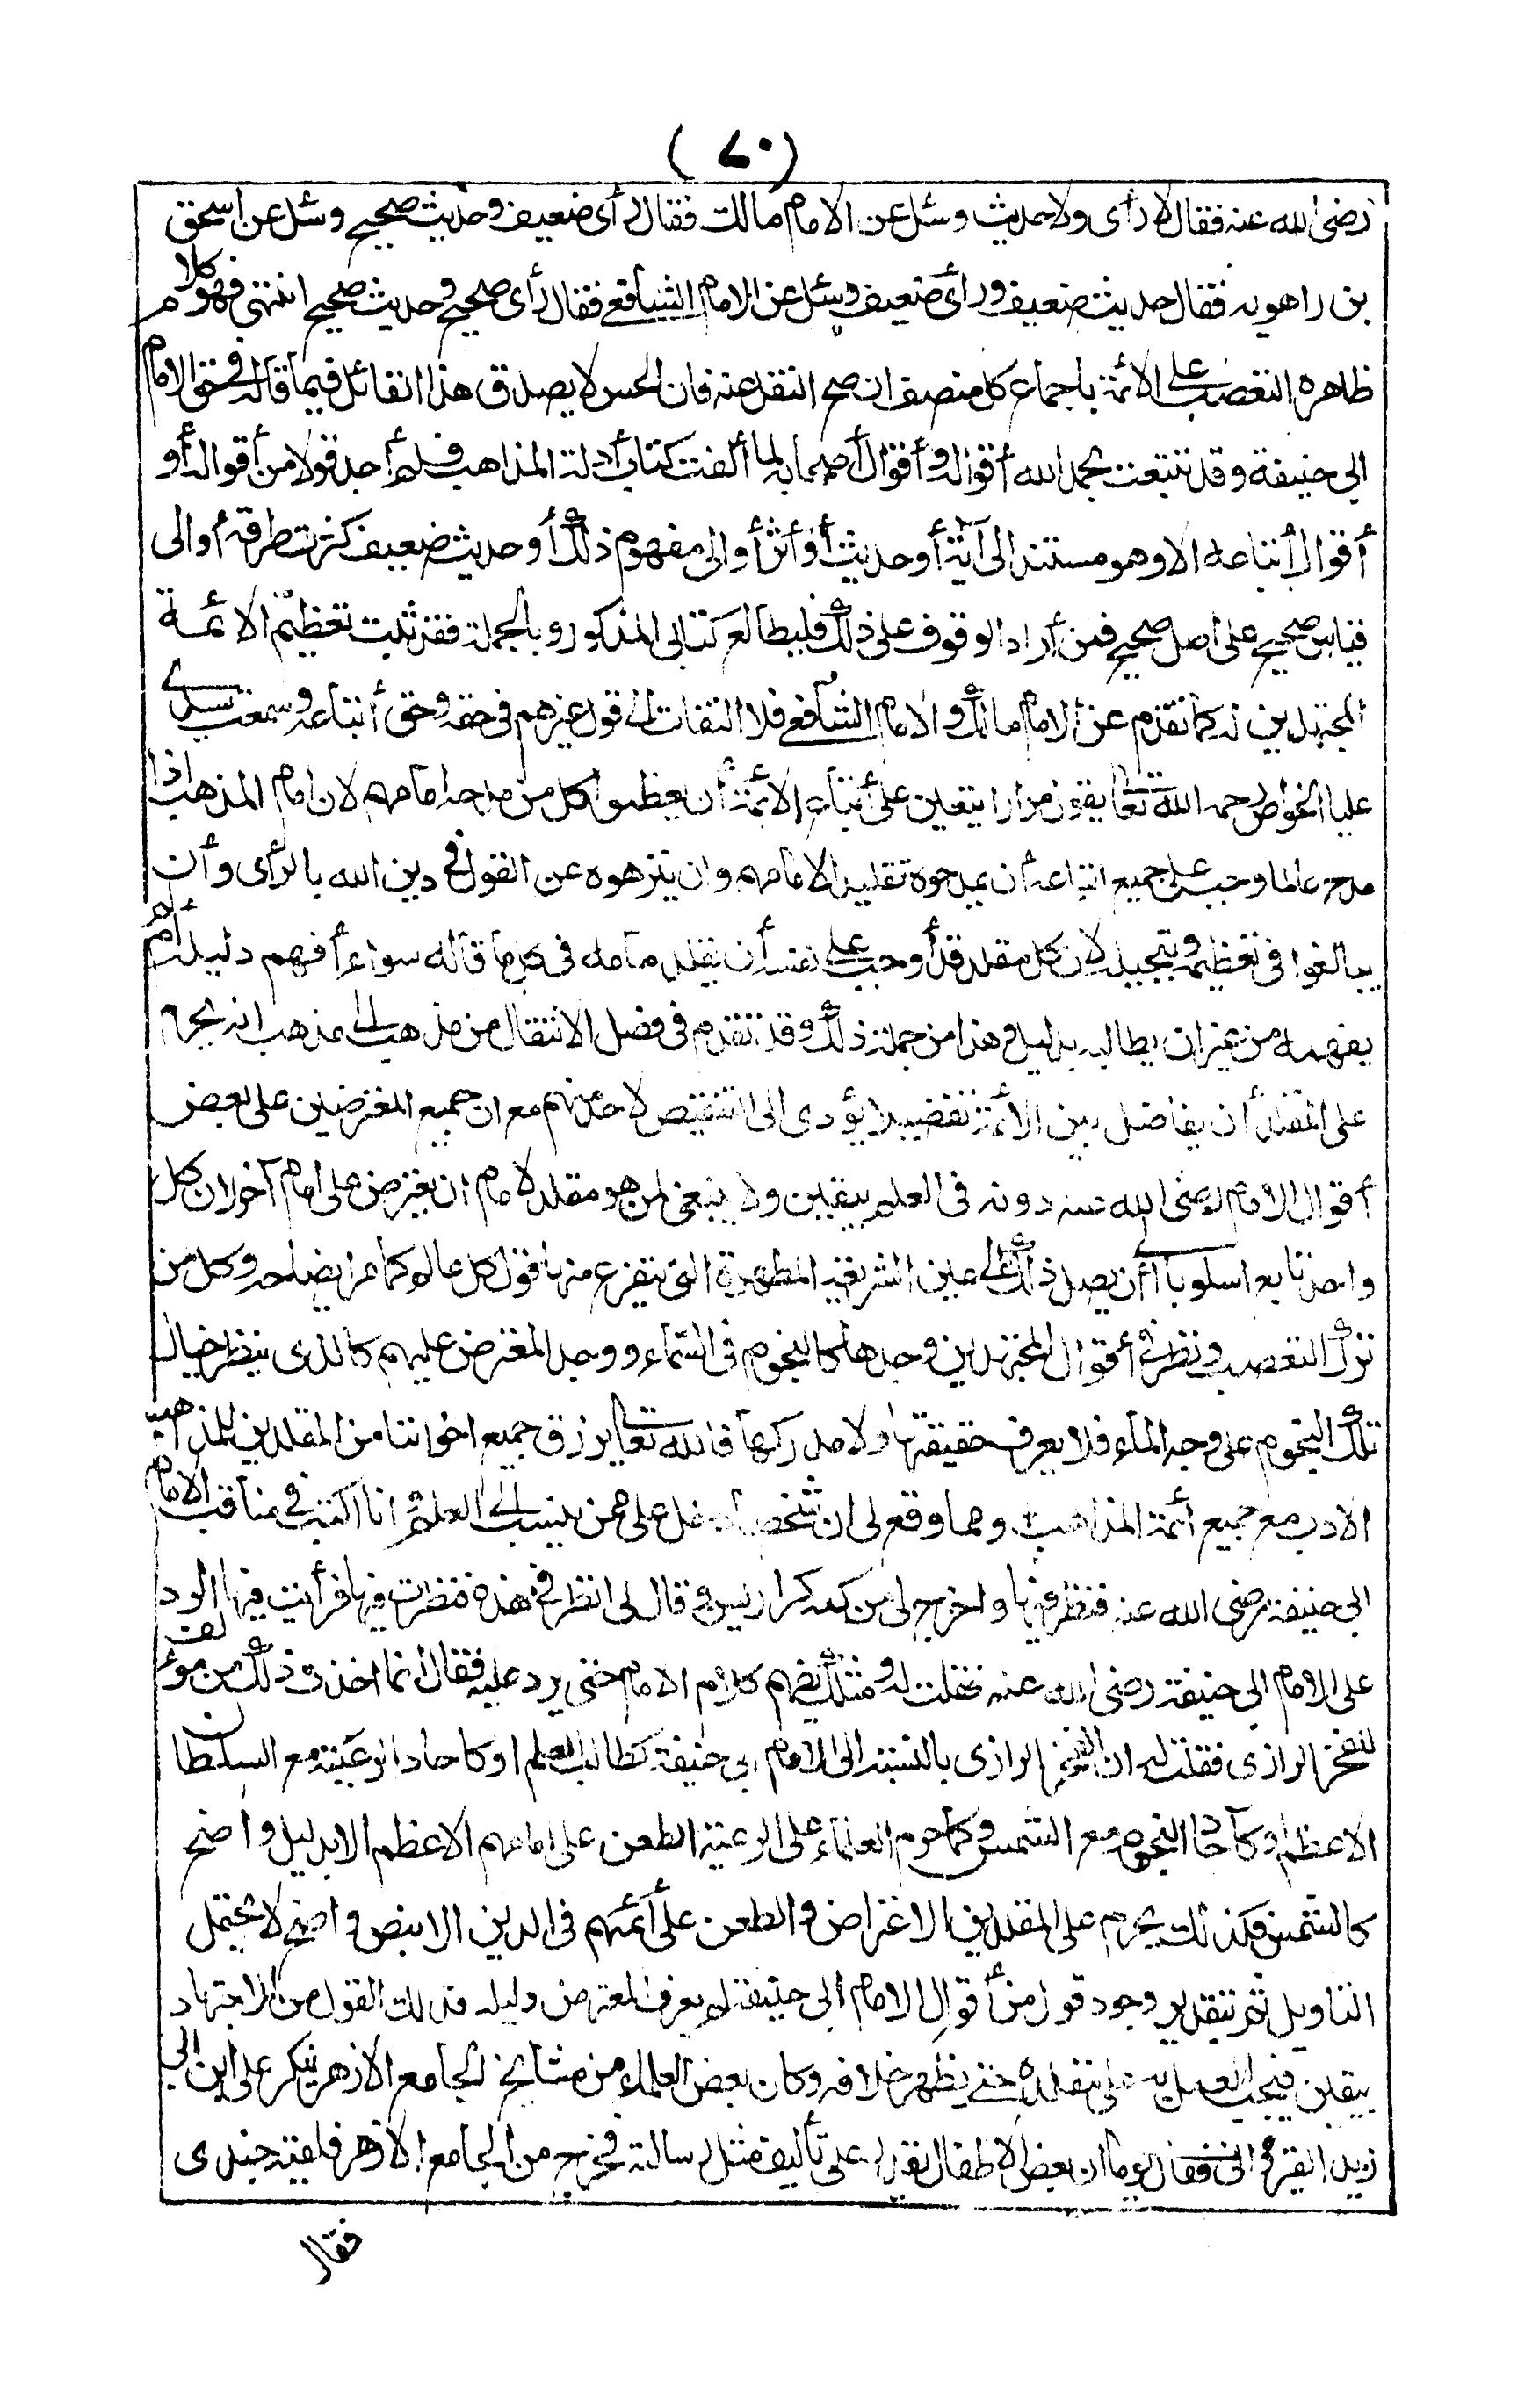 (٧٠)
رضى الله عنه فقال لا رأى ولا حديث وسئل عن الامام مالك فقال رأى ضعيف وحديث صحيح وسئل عن اسحق
بن راهويه فقال حديث ضعيف ورأى ضعيف وسئل عن الامام الشافعى فقال رأى صحيح وحديث صحيح انتهى فهو كلام
ظاهره التعصب على الائمة باجماع كل منصف ان صح النقل عنه فان الحس لا يصدق هذا القائل فيما قاله فى حق الامام
ابى حنيفة وقد تتبعت بحمد الله أقواله وأقوال أصحابه لما ألفت كتاب أدلة المذاهب فلم أجد قولا من أقواله أو
أقوال أتباعه الا وهو مستند الى آية أو حديث أو أثر أو الى مفهوم ذلك أو حديث ضعيف كثرت طرقه أو الى
قياس صحيح على أصل صحيح فمن أراد الوقوف على ذلك فليطالع كتابى المذكور وبالجملة فقد ثبت تعظيم الائمة
المجتهدين له كما تقدم عن الامام مالك والامام الشافعى فلا التفات الى قول غيرهم فى حقه وحق أتباعه وسمعت سيدى
عليا الخواص رحمه الله تعالى يقول مرارا يتعين على أتباع الائمة أن يعظموا كل من مدحه امامهم لان امام المذهب اذا
مدح عالما وجب على جميع اتباعه أن يمدحوه تقليدا لامامهم وان ينزهوه عن القول فى دين الله بالرأى وأن
يبالغوا فى تعظيمه وتبجيله لان كل مقلد قد أوجب على نفسه أن يقلد امامه فى كل ما قاله سواء أفهم دليله أم لم
يفهمه من غير ان يطالبه بدليل وهذا من جملة ذلك وقد تقدم فى فصل الانتقال من مذهب الى مذهب انه يحرم
على المقلد أن يفاضل بين الأئمة تفضيلا يؤدى الى التنقيص لاحد منهم مع ان جميع المعترضين على بعض
أقوال الامام رضى الله عنه دونه فى العلم بيقين ولا ينبغى لمن هو مقلد لامام ان يعترض على امام آخر لان كل
واحد تابع اسلوبا الى أن يصل ذلك الى عين الشريعة المطهرة التى يتفرع منها قول كل عالم كما مر ايضاحه وكل من
ترك التعصب ونظر فى أقوال المجتهدين وجدها كالنجوم فى السماء ووجد المعترض عليهم كالذى ينظر خيال
تلك النجوم على وجه الماء فلا يعرف حقيقتها ولا مدركها فالله تعالى يرزق جميع اخواننا من المقلدين للمذاهب
الادب مع جميع أئمة المذاهب ومما وقع لى ان شخصا دخل على ممن ينسب الى العلم وانا اكتب فى مناقب الامام
ابى حنيفة رضى الله عنه فنظر فيها واخرج لى من كمه كراريس وقال لى انظر فى هذه فنظرت فيها فرأيت فيها الرد
على الامام ابى حنيفة رضى الله عنه فقلت له ومثلك يفهم كلام الامام حتى يرد عليه فقال انما اخذت ذلك من مؤلف
للفخر الرازى فقلت له ان الفخر الرازى بالنسبة الى الامام ابى حنيفة كطالب العلم او كآحاد الرعية مع السلطان
الاعظم او كآحاد النجوم مع الشمس وكما حرم العلماء على الرعية الطعن على امامهم الاعظم الا بدليل واضح
كالشمس فكذلك يحرم على المقلدين الاعتراض والطعن على أئمتهم فى الدين الا بنص واضح لا يحتمل
التاويل ثم بتقدير وجود قول من أقوال الامام ابى حنيفة لم يعرف المعترض دليله فذلك القول من الاجتهاد
بيقين فيجب العمل به على مقلده حتى يظهر خلافه وكان بعض العلماء من مشايخ الجامع الازهر ينكر على ابن ابى
زيد القيروانى فقال يوما ان بعض الاطفال يقدر على تأليف مثل رسالته فخرج من الجامع الازهر فلقيه جندى
فقال